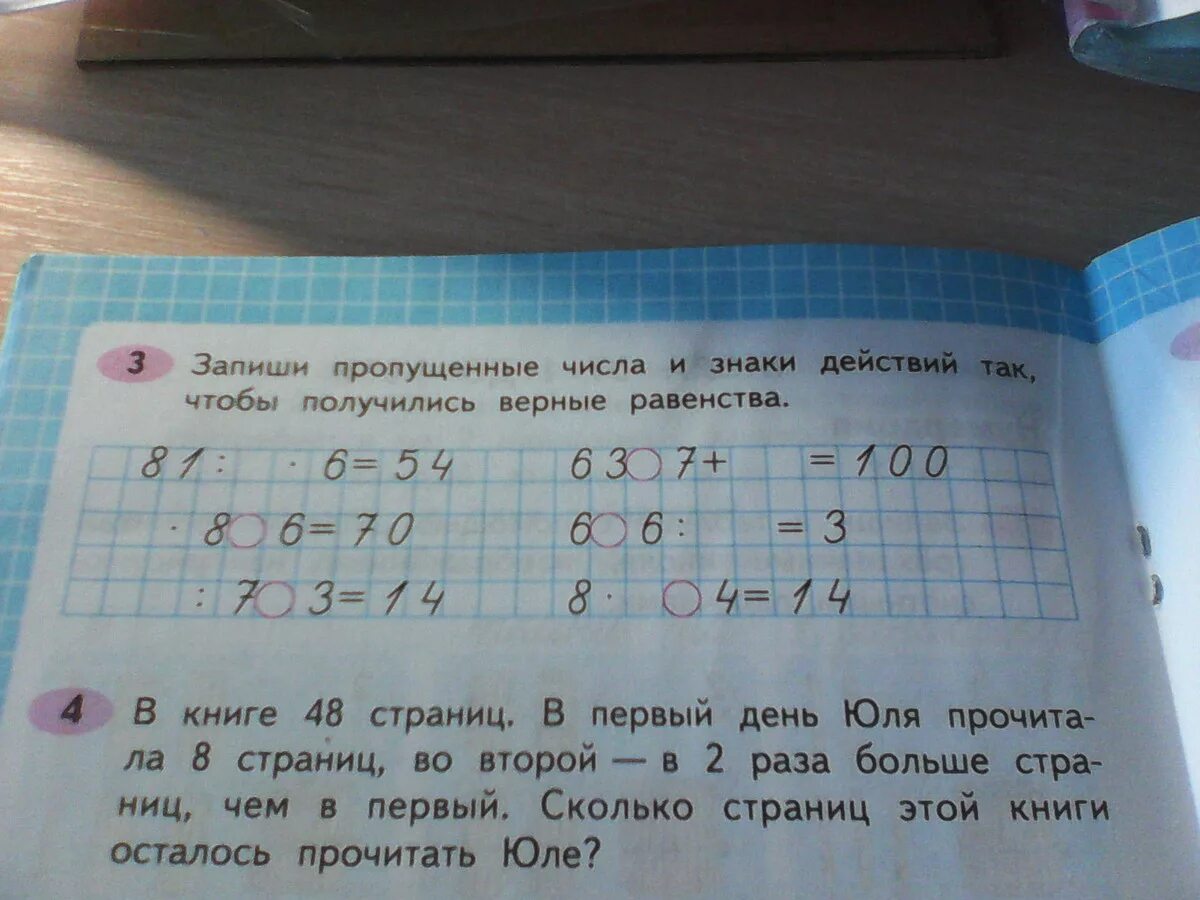 3 Запиши пропущенные числа и знаки действий так,
чтобы получились верные равенства.
81: · 6=54 63○7+ =100
· 8○6=70 6○6: =3
: 7○3=14 8· ○4=14
4 В книге 48 страниц. В первый день Юля прочита-
ла 8 страниц, во второй — в 2 раза больше стра-
ниц, чем в первый. Сколько страниц этой книги
осталось прочитать Юле?